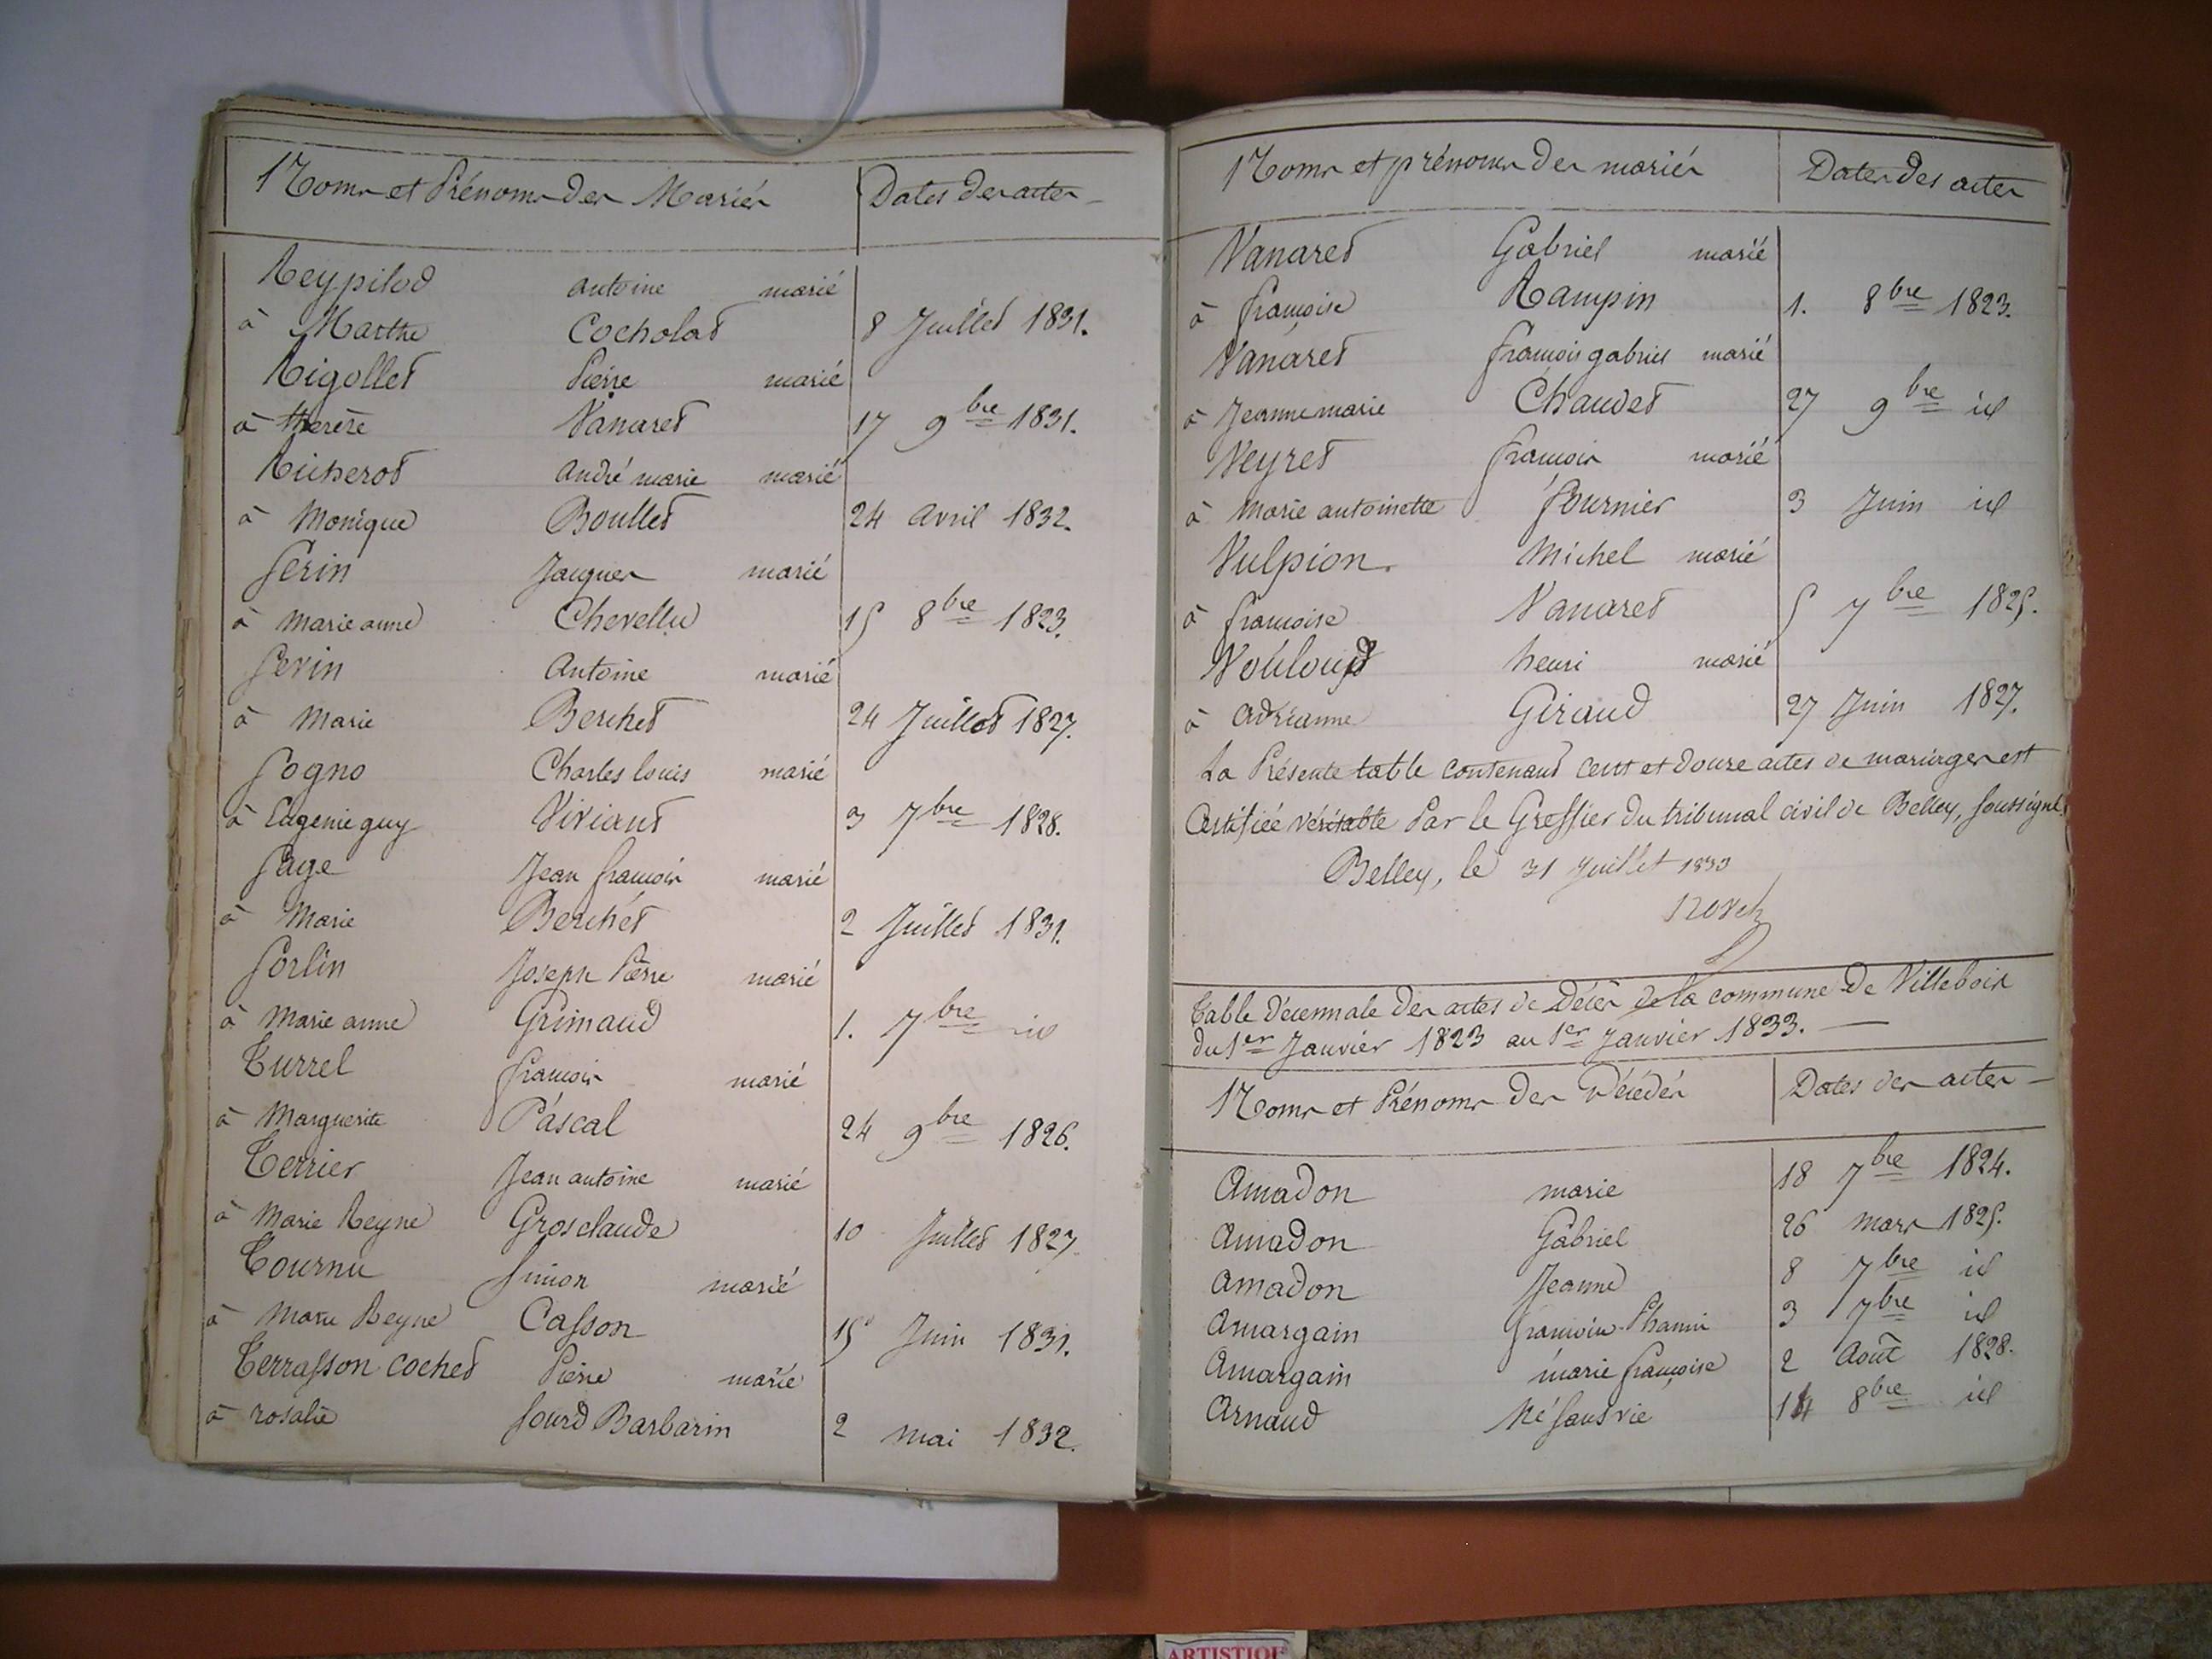 Noms et Prénoms des Mariés Dates des actes
Reypilod antoine marié
à Marthe Cocholat 8 Juillet 1831.
Rigollet Pierre marié
à therèse Vanaret 17 9bre 1831.
Richerot andré marie marié
à Monique Boullet 24 avril 1832.
Serin Jacques marié
à marie anne Chevellu 15 8bre 1823.
Serin Antoine marié
à Marie Berchet 24 Juillet 1827.
Sogno Charles louis marié
à Eugenie guy Viviant 3 7bre 1828.
Sage Jean françois marié
à Marie Berchet 2 Juillet 1831.
Sorlin Joseph Pierre marié
à Marie anne Grimaud 1. 7bre id
Turrel françois marié
à Marguerite Pascal 24 9bre 1826.
Terrier Jean antoine marié
à Marie Reyne Grosclaude 10 Juillet 1827.
Tournu Simon marié
à Marie Reyne Casson 15 Juin 1831.
Terrasson cochet Pierre marié
à rosalie Sourd Barbarin 2 mai 1832.
Noms et prénoms des mariés Dates des actes
Vanaret Gabriel marié
à françoise Rampin 1. 8bre 1823.
Vanaret françois gabriel marié
à Jeanne marie Chaudet 27 9bre id
Veyret françois marié
à Marie antoinette fournier 3 Juin id
Vulpion Michel marié
à françoise Vanaret 5 7bre 1825.
henri marié
à adrianne Giraud 27 Juin 1827.
La Présente table contenant cent et douze actes de mariages est
Certifiée véritable Par le Greffier du tribunal civil de Belley, soussigné.
Belley, le 31 Juillet 1833
Table décennale des actes de Décès de la commune de Villebois
du 1er Janvier 1823 au 1er Janvier 1833.
Noms et Prénoms des Décédés Dates des actes
Amadon marie 18 7bre 1824.
Amadon Gabriel 26 mars 1825.
Amadon Jeanne 8 7bre id
Amargain 3 7bre id
Amargain marie françoise 2 Août 1828.
Arnaud Né sans vie 14 8bre id
ARTISTIQUE